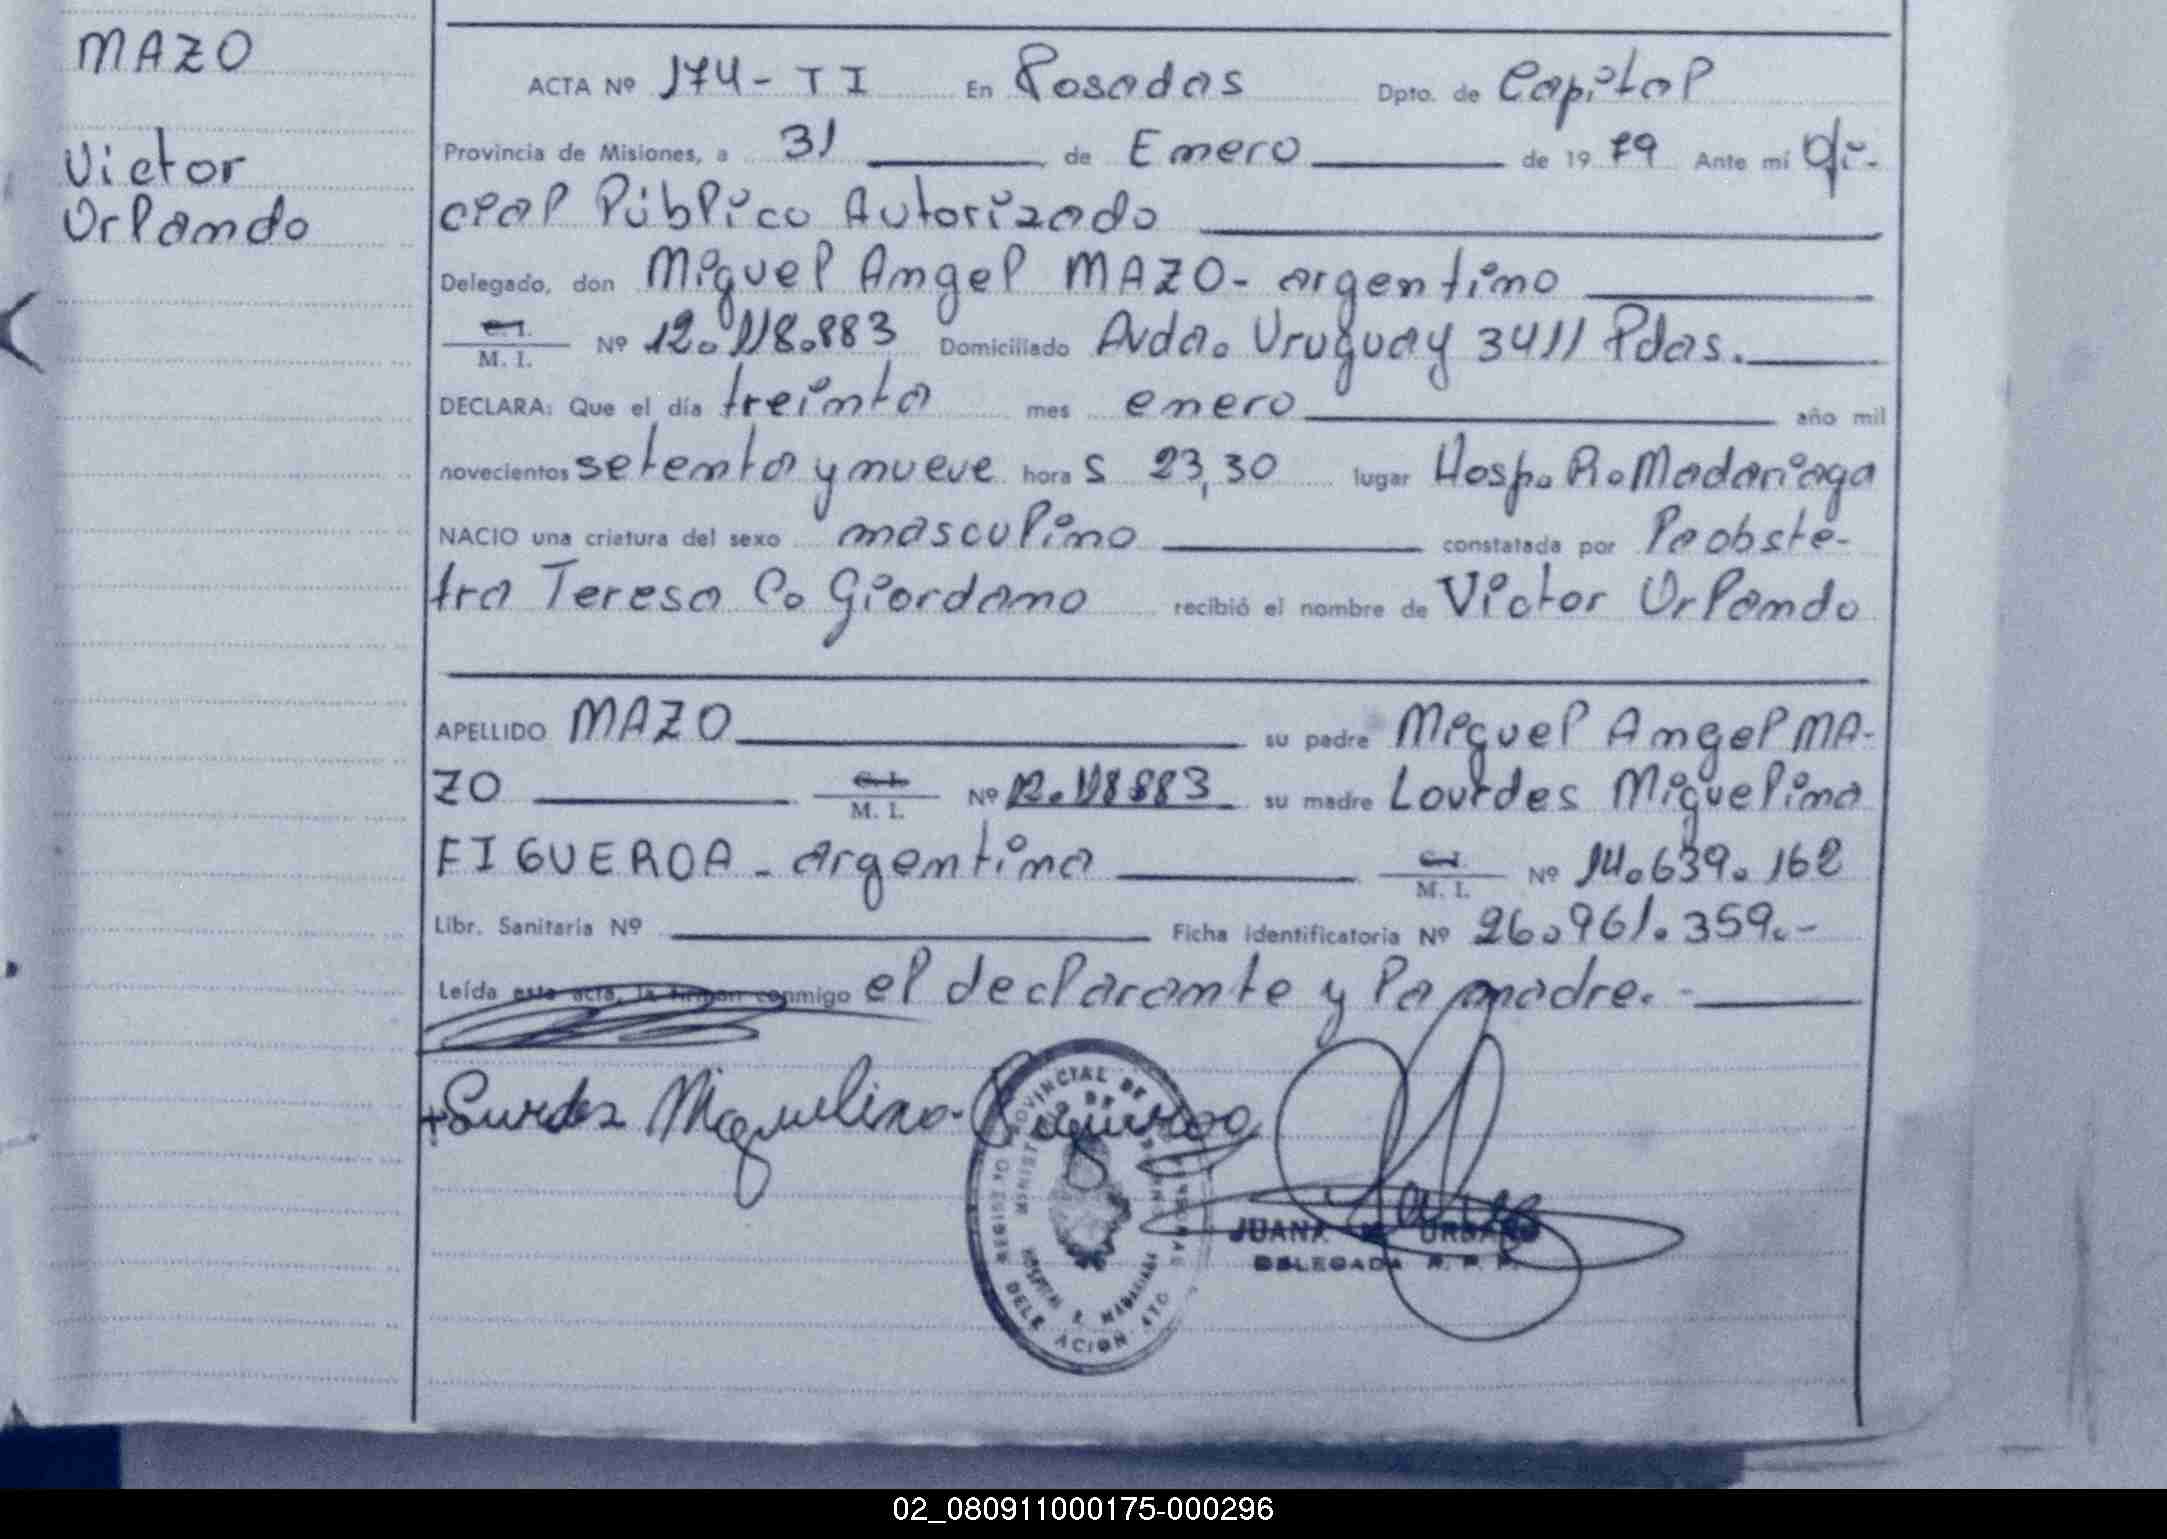 MAZO
Victor
Orlando
ACTA Nº 174 - T I En Posadas Dpto. de Capital
Provincia de Misiones, a 31 de Enero de 1979 Ante mí Ofi-
cial Público Autorizado
Delegado, don Miguel Angel MAZO - argentino
C.I.
M. I. Nº 12.118.883 Domiciliado Avda. Uruguay 3411 Pdas.
DECLARA: Que el día treinta mes enero año mil
novecientos setenta y nueve hora s 23,30 lugar Hosp. R. Madariaga
NACIO una criatura del sexo masculino constatada por la obste-
tra Teresa C. Giordano recibió el nombre de Victor Orlando
APELLIDO MAZO su padre Miguel Angel MA-
ZO C.I. M. I. Nº 12.118883 su madre Lourdes Miguelina
FIGUEROA - argentina C.I. M. I. Nº 14.639.162
Libr. Sanitaria Nº Ficha identificatoria Nº 26.961.359.-
Leída este acta, la firman conmigo el declarante y la madre. -
Lurdes Miguelina Figueroa
REGISTRO PROVINCIAL DE LAS PERSONAS
MINISTERIO DE
HOSPITAL R. MADARIAGA
DELEGACION
JUANA URBANO
DELEGADA R. P. P.
02_080911000175-000296